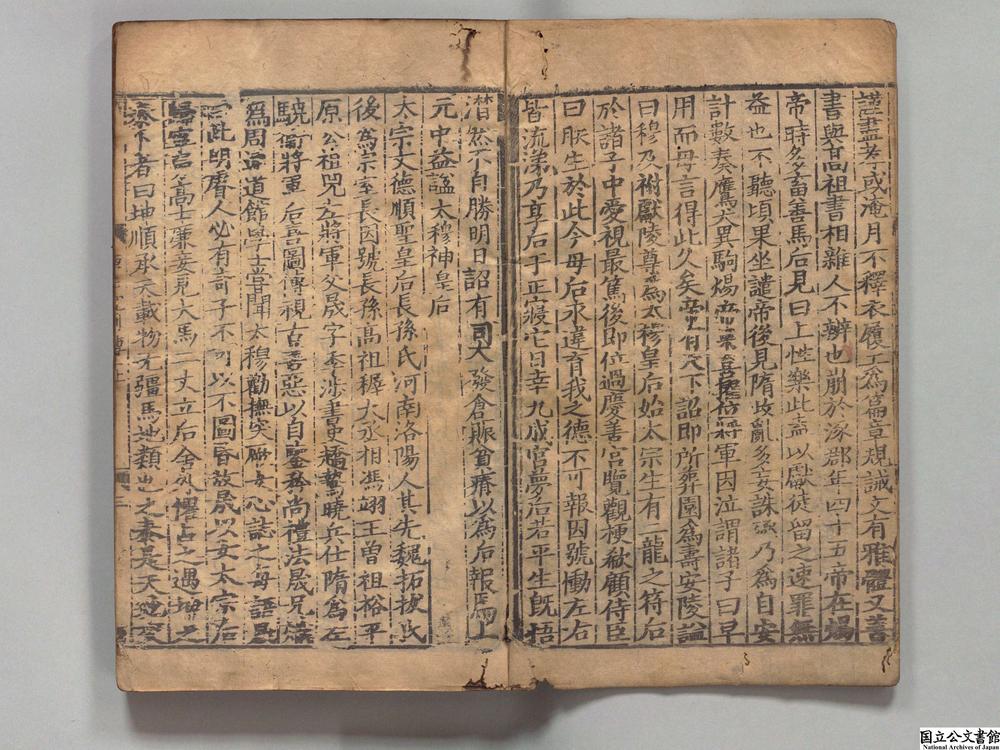 謹盡孝或淹月不釋衣履工爲篇章規誡文有雅體又善
書與高祖書相雜人不辨也崩於涿郡年四十五帝在煬
帝時多畜善馬后見曰上性樂此盍以獻徒留之速罪無
益也不聽頃果坐譴帝後見隋政亂多妄誅殛乃爲自安
計數奏鷹犬異駒煬帝果喜擢位將軍因泣謂諸子曰早
用而母言得此久矣帝有天下詔即所葬園爲壽安陵諡
曰穆乃祔獻陵尊爲太穆皇后始太宗生有二龍之符后
於諸子中愛視最篤後即位過慶善宮覽觀梗欷顧侍臣
曰朕生於此今母后永違育我之德不可報因號慟左右
皆流涕乃享后于正寢它日幸九成宮夢后若平生旣悟
潸然不自勝明日詔有司大發倉賑貧瘠以爲后報焉上
元中益諡太穆神皇后
太宗文德順聖皇后長孫氏河南洛陽人其先魏拓拔氏
後爲宗室長因號長孫高祖稺大丞相馮翊王曾祖裕平
原公祖兕左將軍父晟字季涉書史趫鷙曉兵仕隋爲左
驍衞將軍后喜圖傳視古善惡以自鑒矜尚禮法晟兄熾
爲周通道館學士嘗聞太穆勸撫突厥女心誌之每語晟
曰此明睿人必有奇子不可以不圖昏故晟以女太宗后
歸寧舅高士廉妾見大馬二丈立后舍外懼占之遇坤之
泰卜者曰坤順承天載物无疆馬地類也之泰是天地交
国立公文書館
National Archives of Japan